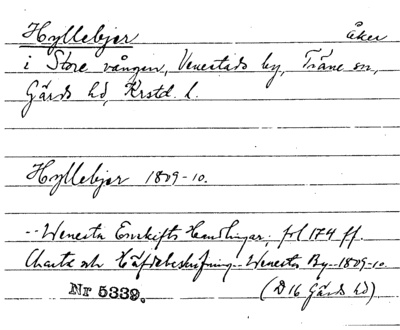 Hyllebjer Åker
i Store vången, Venestads by, Träne sn,
Gärds hd, Krstd. l.
Hyllebjer 1809-10.
-- Wenesta Enskifts Handlingar, fol 174 ff.
Charta och Häfdebeskrifning -- Wenestas By -- 1809-10.
Nr 5339. (D16 Gärds hd)